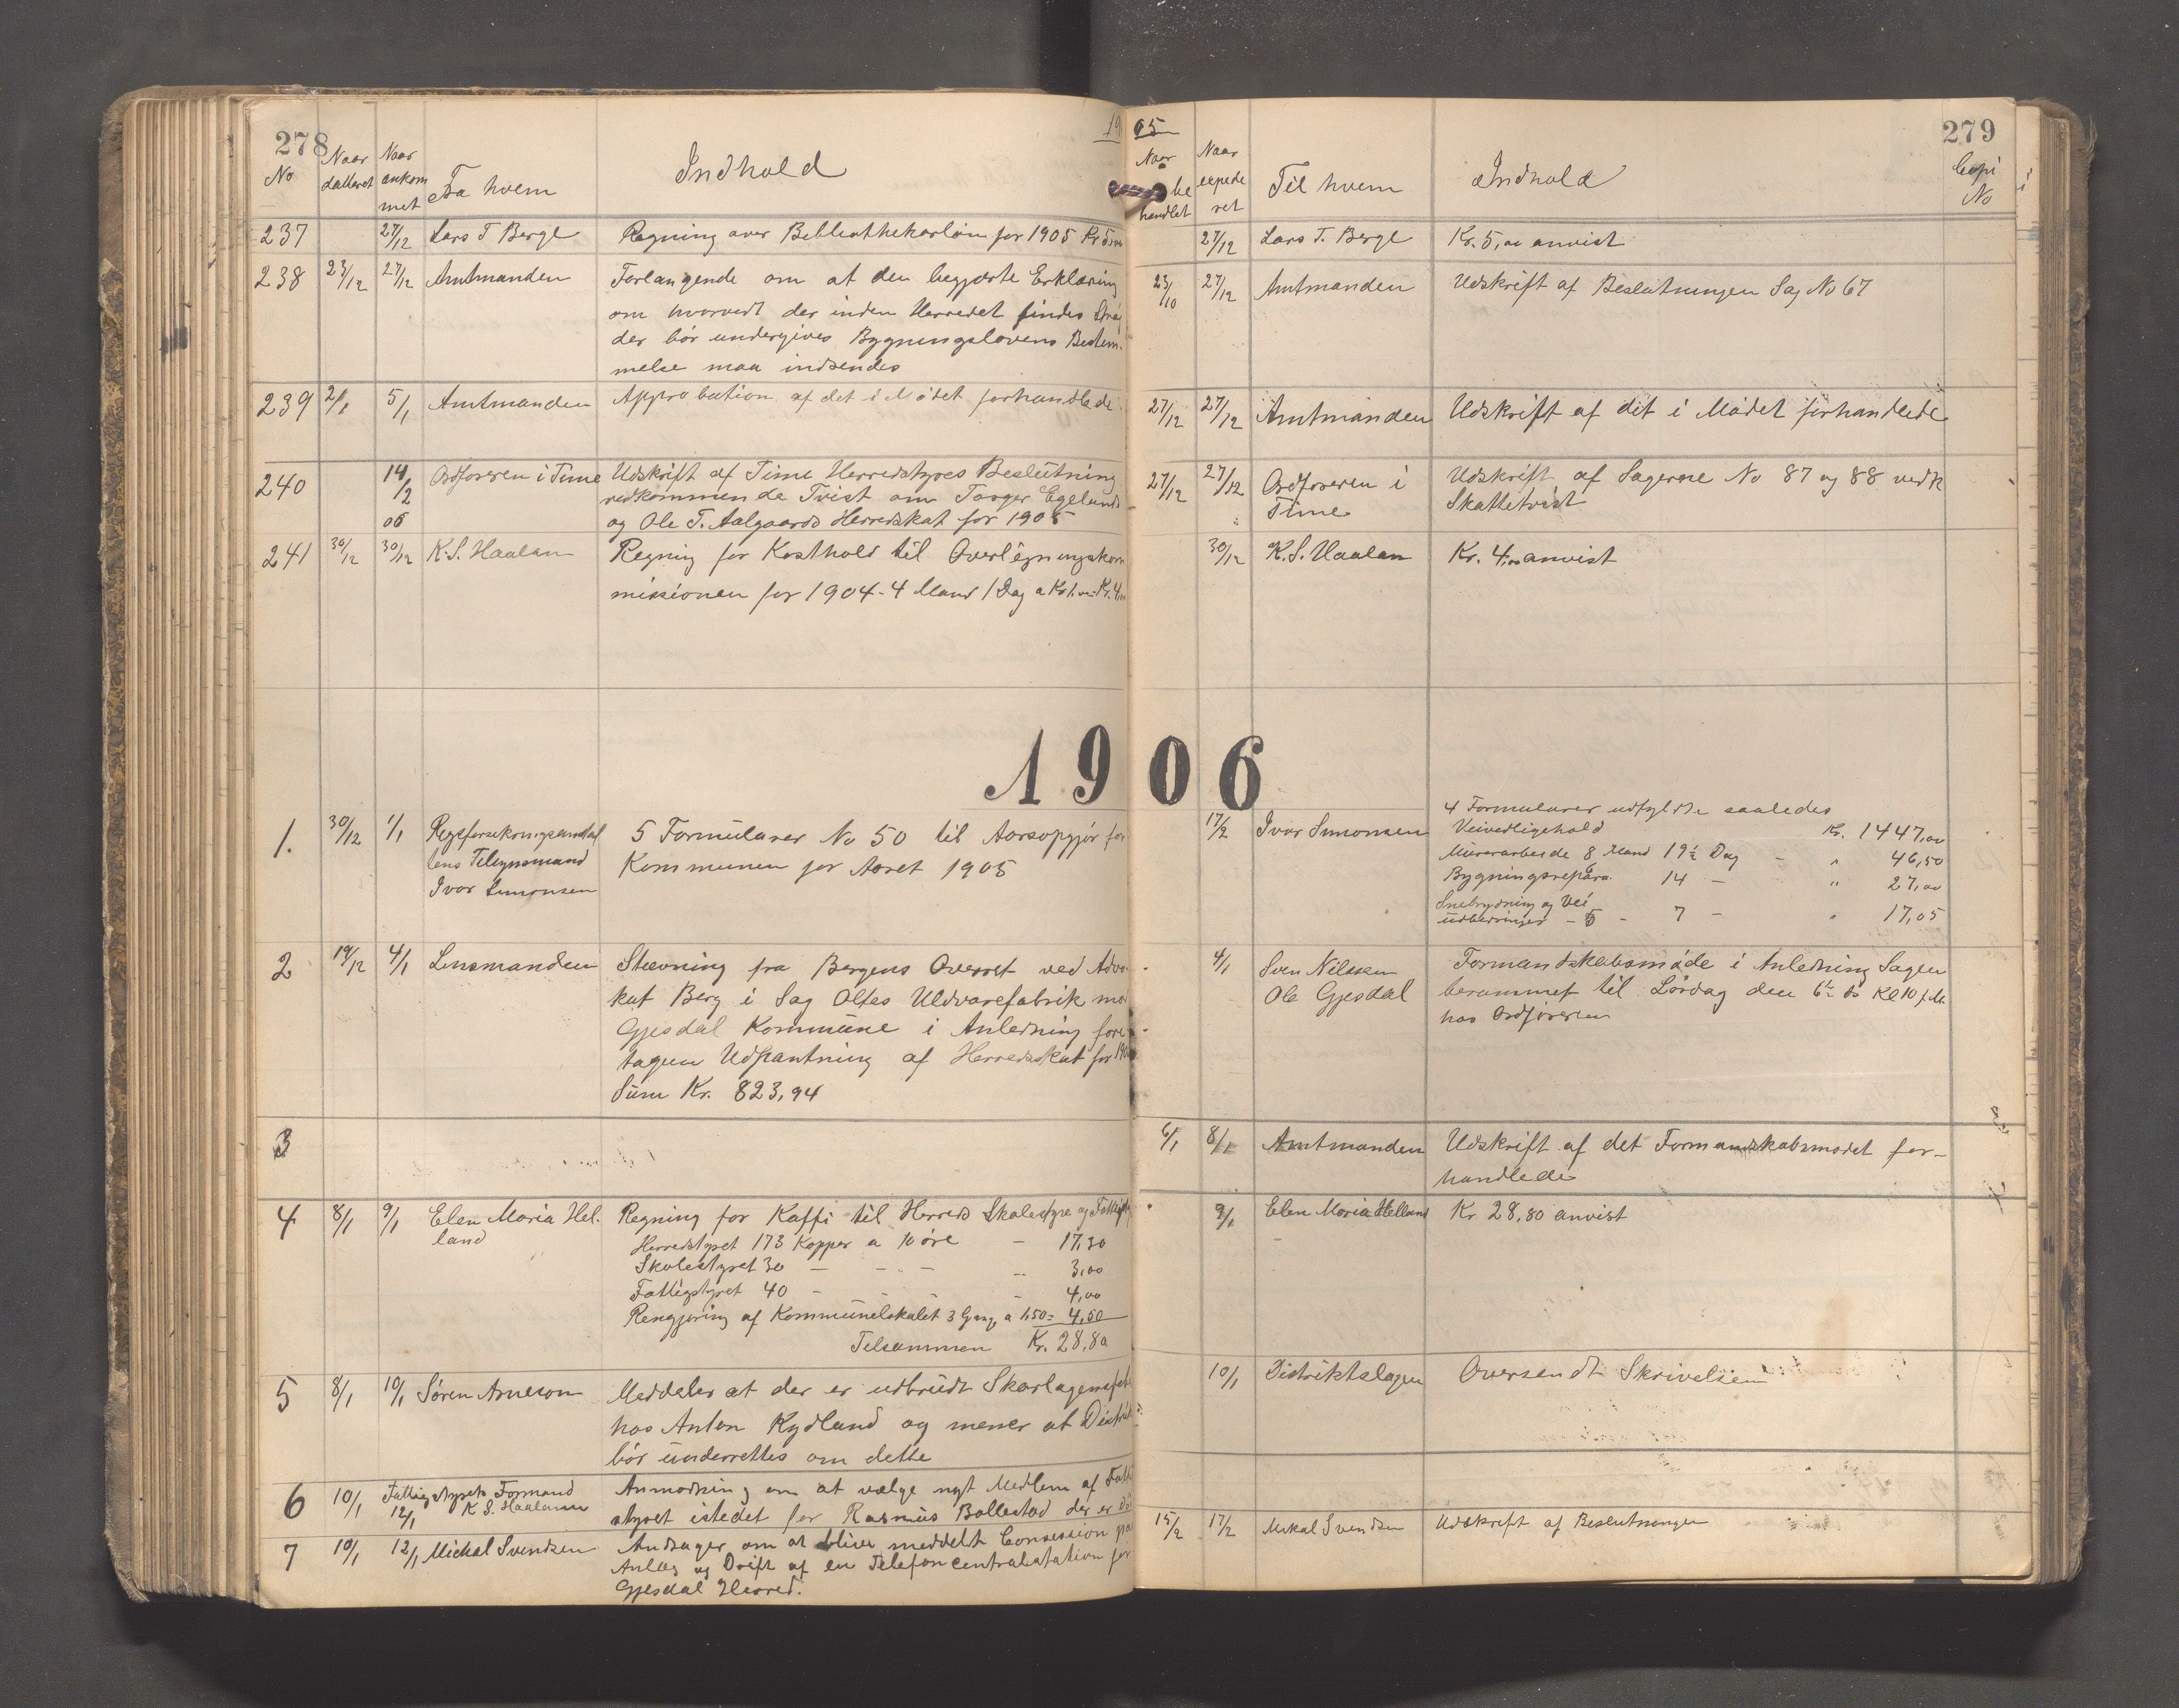 278
1905
No
Naar datteret
Naar ankommet
Fra hvem
Indhold
237 27/12 Lars T Berge Regning over Bibliothekarløn for 1905 Kr 5,00
238 23/12 27/12 Amtmanden Forlangende om at den begjærte Erklæring
om hvorvidt der inden Herredet findes Strøg
der bør undergives Bygningslovens Bestem-
melse maa indsendes
239 2/1 5/1 Amtmanden Approbation af det i Mødet forhandlede
240 14/2 06 Ordføreren i Time Udskrift af Time Herredstyres Beslutning
vedkommende Tvist om Torger Egelands
og Ole T. Aalgaards Herredskat for 1905
241 30/12 30/12 K. S. Haaland Regning for Kosthold til Overligningskom
missionen for 1904 - 4 Mand 1 Dag a Kr 1.00 = Kr. 4,00
1906
1. 30/12 1/1 Rigsforsikringsanstal
tens Tilsynsmand
Ivar Simonsen
5 Formularer No 50 til Aarsopgjør for
Kommunen for Aaret 1905
2 19/12 4/1 Lensmanden Stævning fra Bergens Overret ved Advo-
kat Berg i Sag Olfes Uldvarefabrik mod
Gjesdal Kommune i Anledning fore-
tagen Udpantning af Herredsskat for
Sum Kr. 823,94
3
4 8/1 9/1 Elen Maria Hel-
land
Regning for Kaffi til Herreds Skolestyre og
Herredstyret 173 Kopper a 10 øre - 17,30
Skolestyret 30 - - - 3,00
Fattigstyret 40 - - - 4,00
Rengjøring af Kommunelokalet 3 Gange a 1,50 = 4,50
Tilsammen Kr. 28,80
5 8/1 10/1 Søren Arneson Meddeler at der er udbrudt Skarlagensfeber
hos Anton Kydland og mener at
bør underrettes om dette
6 10/1 12/1 Fattigstyrets Formand
K S. Haaland
Anmodning om at vælge nyt Medlem af
styret istedet for Rasmus Bollestad der er
7 10/1 12/1 Mickal Svendsen Andrager om at blive meddelt Consession paa
Anlæg og Drift af en Telefoncentralstation for
Gjesdal Herred.
279
Naar behandlet
Naar expederet
Til hvem
Indhold
Copi No
27/12 Lars T. Berge Kr. 5,00 anvist
23/10 27/12 Amtmanden Udskrift af Beslutningen Sag No 67
27/12 27/12 Amtmanden Udskrift af det i Mødet forhandlede
27/12 27/12 Ordføreren i
Time
Udskrift af Sagerne No 87 og 88 vedk
Skattetvist
30/12 K. S. Haaland Kr. 4,00 anvist
17/2 Ivar Simonsen 4 Formularer udfyldte saaledes
Veivedligehold Kr. 1447,00
Murerarbeide 8 Mand 19½ Dag - " 46,50
Bygningsrepara. 6 14 - " 27,00
Snebrydning og Vei
udbedringer - 5 - 7 - " 17,05
4/1 Sven Nilssen
Ole Gjesdal
Formandskabsmøde i Anledning Sagen
berammet til Lørdag den 6te ds Kl 10 f.M.
hos Ordføreren
6/1 8/1 Amtmanden Udskrift af det Formandskabsmødet for-
handlede
9/1 Elen Maria Helland Kr 28,80 anvist
10/1 Distriktslægen Oversendt Skrivelsen
15/2 17/2 Mikal Svendsen Udskrift af Beslutningen